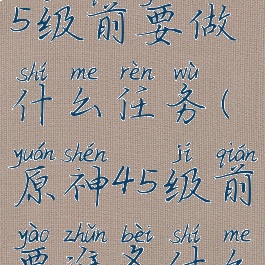 5级前要做
shí me rèn wù
什么任务(
yuán shén jí qián
原神45级前
yào zhǔn bèi shí me
要准备什么